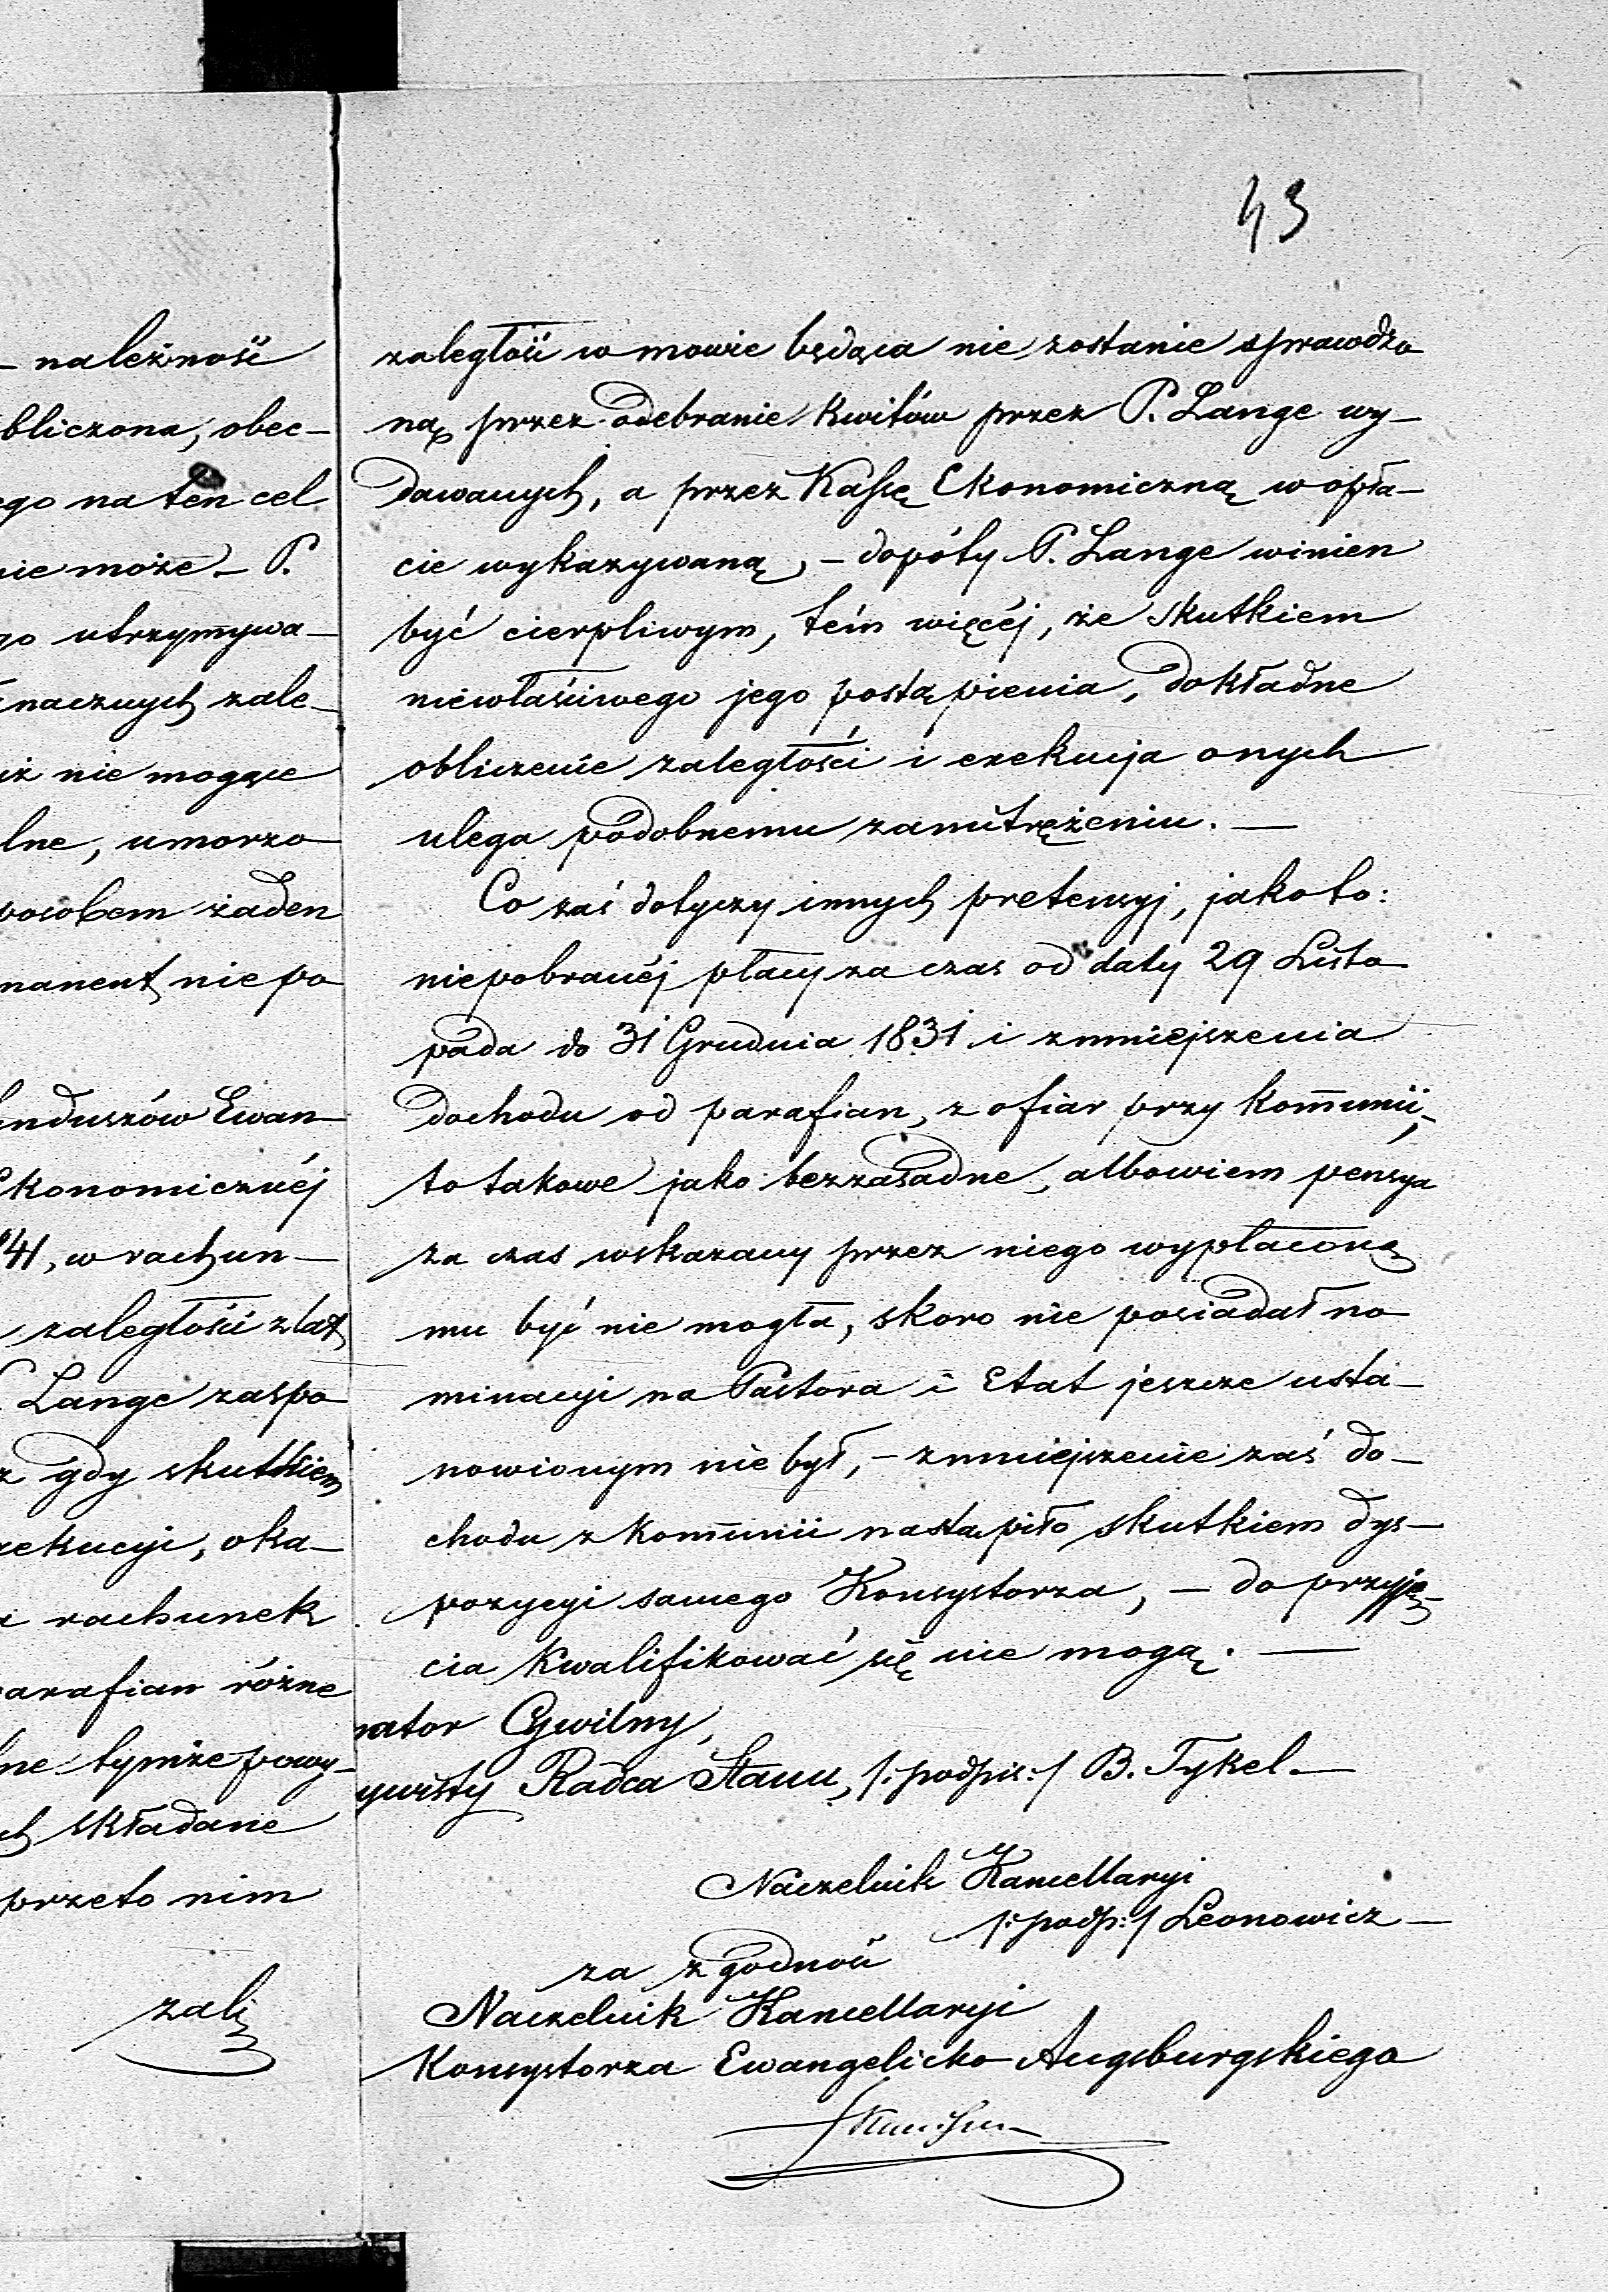 43
należność
bliczona, obec-
ego na ten cel
nie może - P.
go utrzymywa-
znacznych zale-
iż nie mogące
lne, umorzo
posobem żaden
manent nie po
unduszów Ewan-
Ekonomicznéj
41, w rachun-
zaległości z lat
Lange zaspo
z gdy skutkiem
zekucyi, oka-
a rachunek
parafian różne
ne tymże powy-
ch składane
przeto nim
zale
zaległość w mowie będąca nie zostanie sprawdzo
ną, przez odebranie kwitów przez P. Lange wy-
dawanych, a przez Kassę Ekonomiczną w opła-
cie wykazywaną, - dopóty P. Lange winien
być cierpliwym, tém więcéj, że skutkiem
niewłaściwego jego postąpienia, dokładne
obliczenie zaległości i exekucja onych
ulega podobnemu zamitrężeniu. -
Co zaś dotyczy innych pretensyj, jako to:
niepobranéj płacy za czas od daty 29 Listo
pada do 31 Grudnia 1831 i zmniejszenia
dochodu od parafian, z ofiar przy kommunii,
to takowe jako bezzasadne, albowiem pensya
za czas wskazany przez niego wypłaconą
mu być nie mogła, skoro nie posiadał no
minacyi na Pastora i Etat jeszcze usta-
nowionym nie był, - zmniejszenie zaś do-
chodu z kommunii nastąpiło skutkiem dys-
pozycyi samego Konsystorza, - do przyję-
cia kwalifikować się nie mogą. -
nator Cywilny,
ywisty Radca Stanu, /:podpis:/ B. Tykel. -
Naczelnik Kancellaryi
/:podp:/ Leonowicz -
za zgodność
Naczelnik Kancellaryi
Konsystorza Ewangelicko-Augsburgskiego